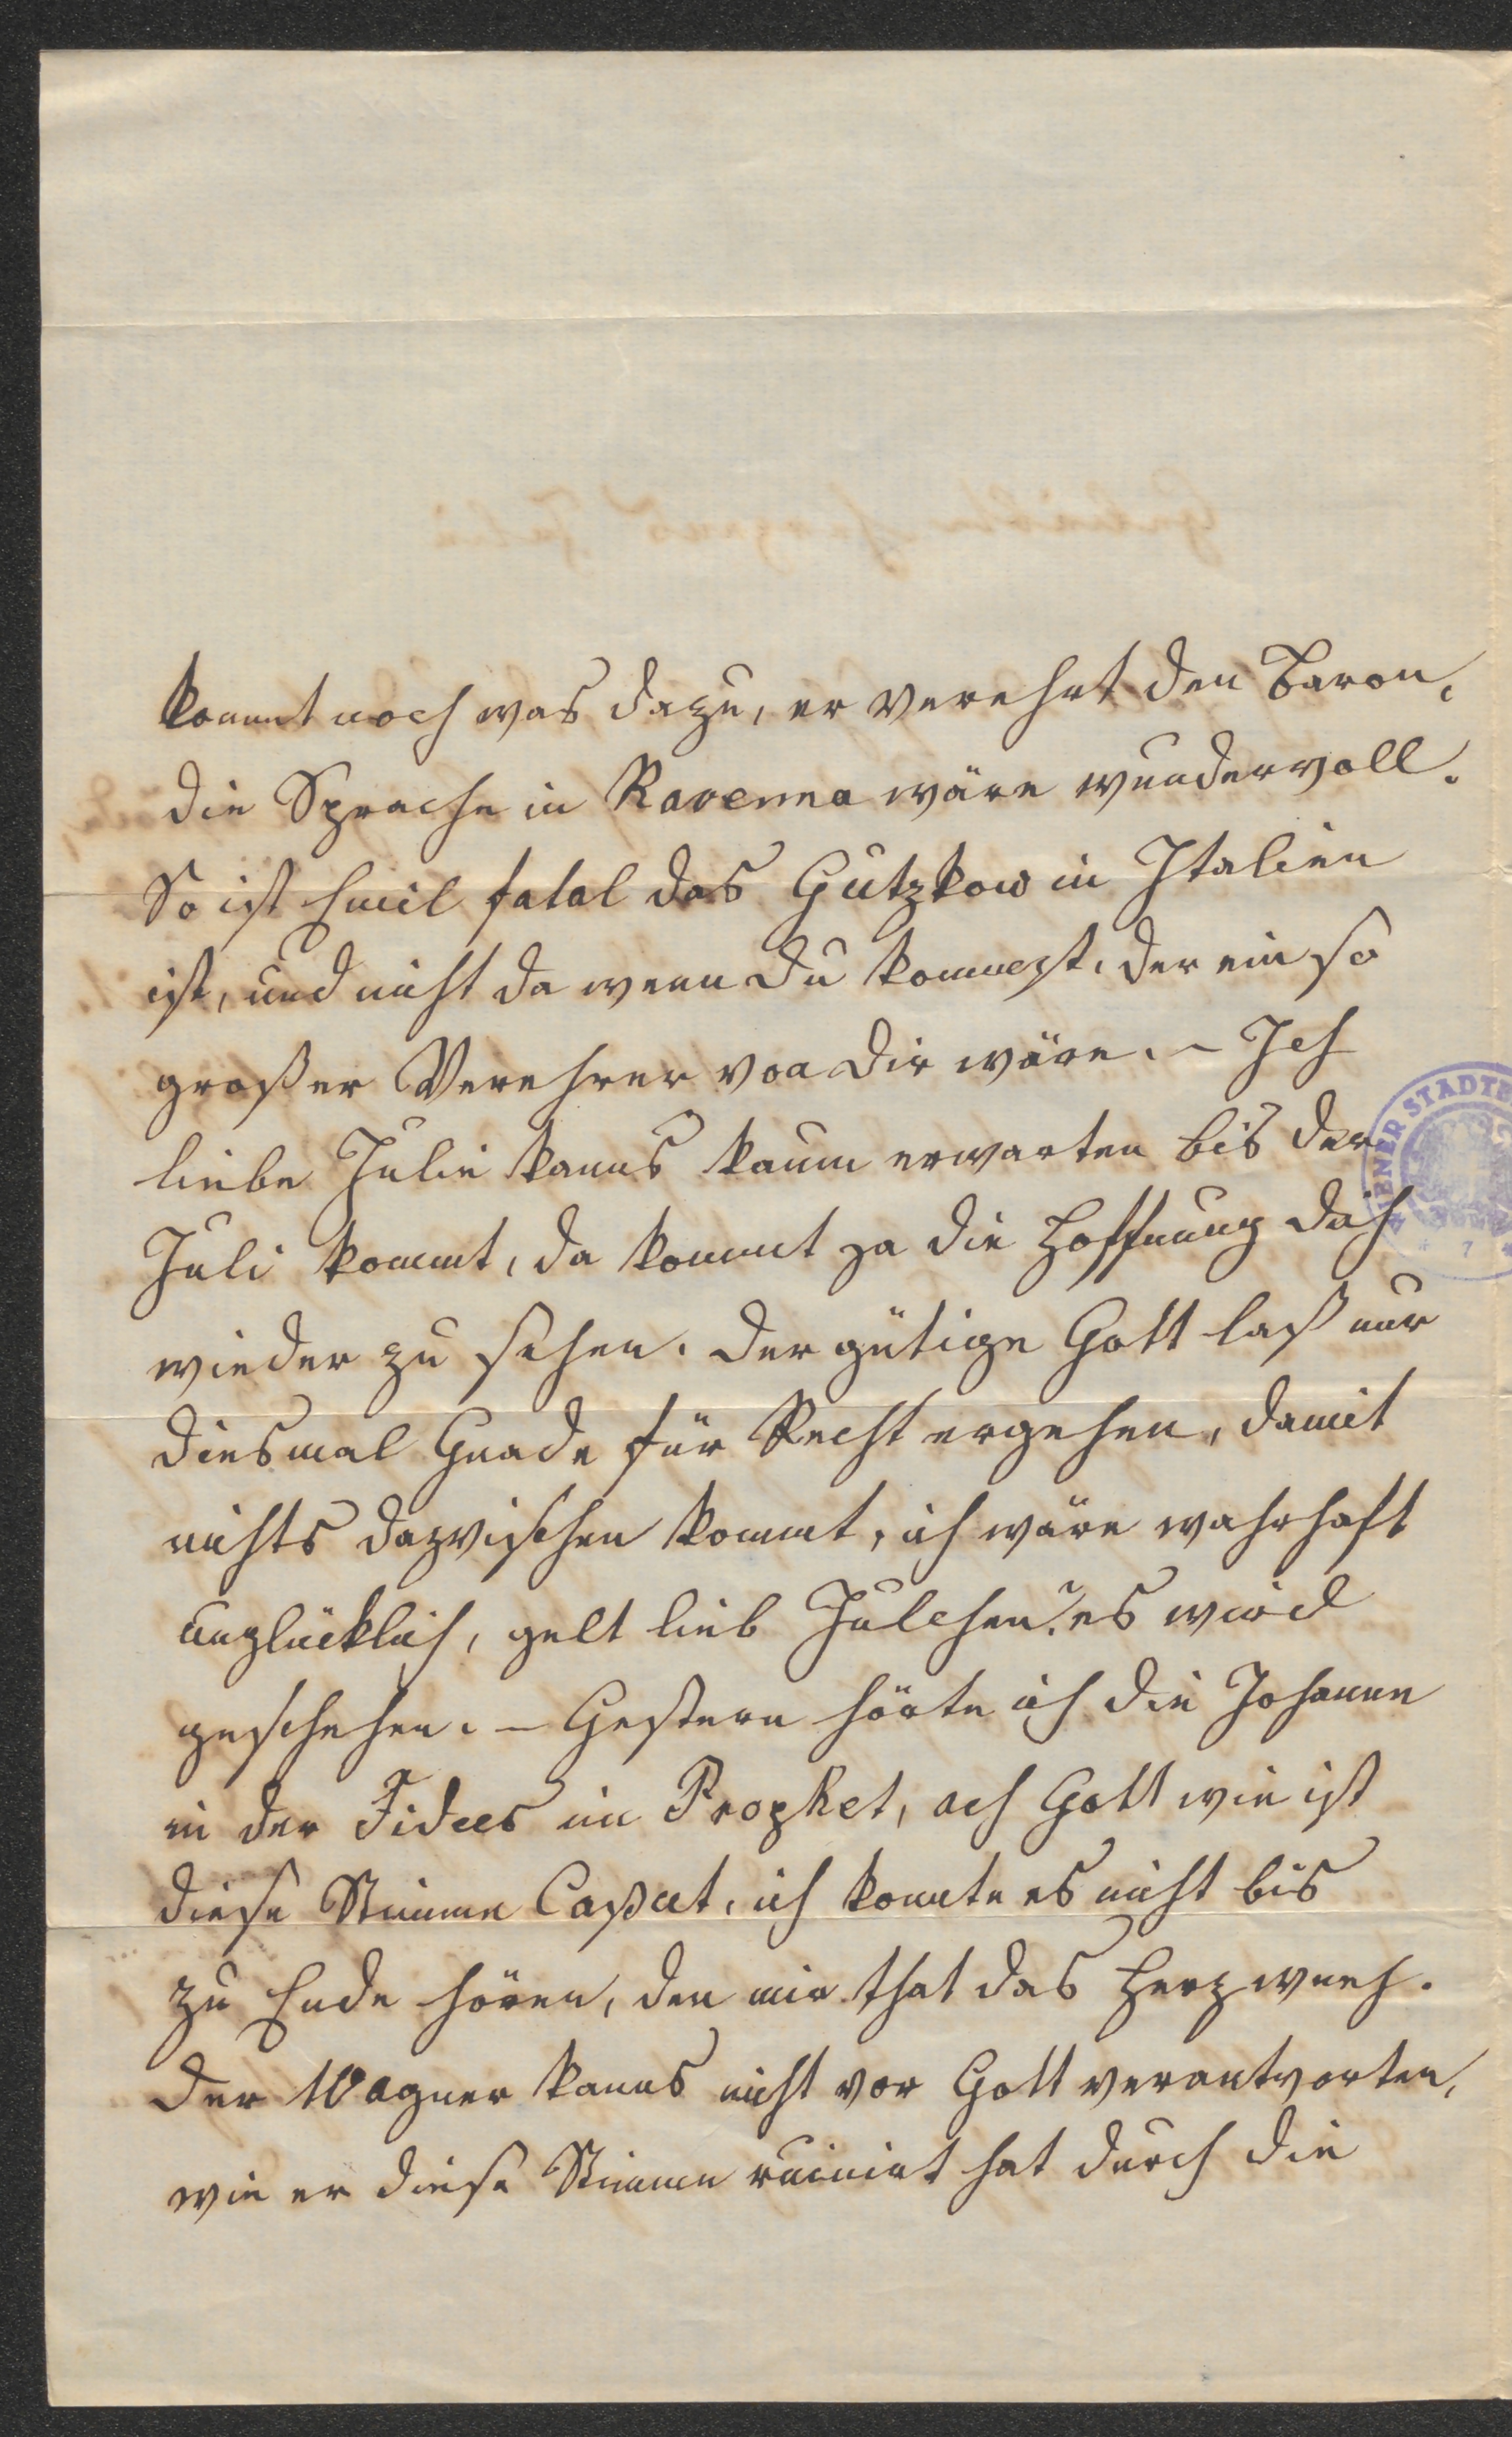 kommt noch was dazu, er verehrt den Baron,
die Sprache in Ravenna wäre wundervoll.
So ist Emil fatal das Gutzkow in Italien
ist, und nicht da wenn Du kommest, der ein so
großer Verehrer von Dir wäre. – Ich
liebe Julie kanns kaum erwarten bis der
Juli kommt, da kommt ja die Hoffnung dich
wieder zu sehen. Der gütige Gott laß nur
diesmal Gnade für Recht ergehen, damit
nichts dazwischen kommt, ich wäre wahrhaft
unglücklich, gelt lieb Julchen? es wird
geschehen. – Gestern hörte ich die Johanne
in der Fidees im Prophet, ach Gott wie ist
diese Stimme Caput, ich konnte es nicht bis
zu Ende hören, den mir that das Herz weeh.
Der Wagner kanns nicht vor Gott verantworten,
wie er diese Stimme ruinirt hat durch die